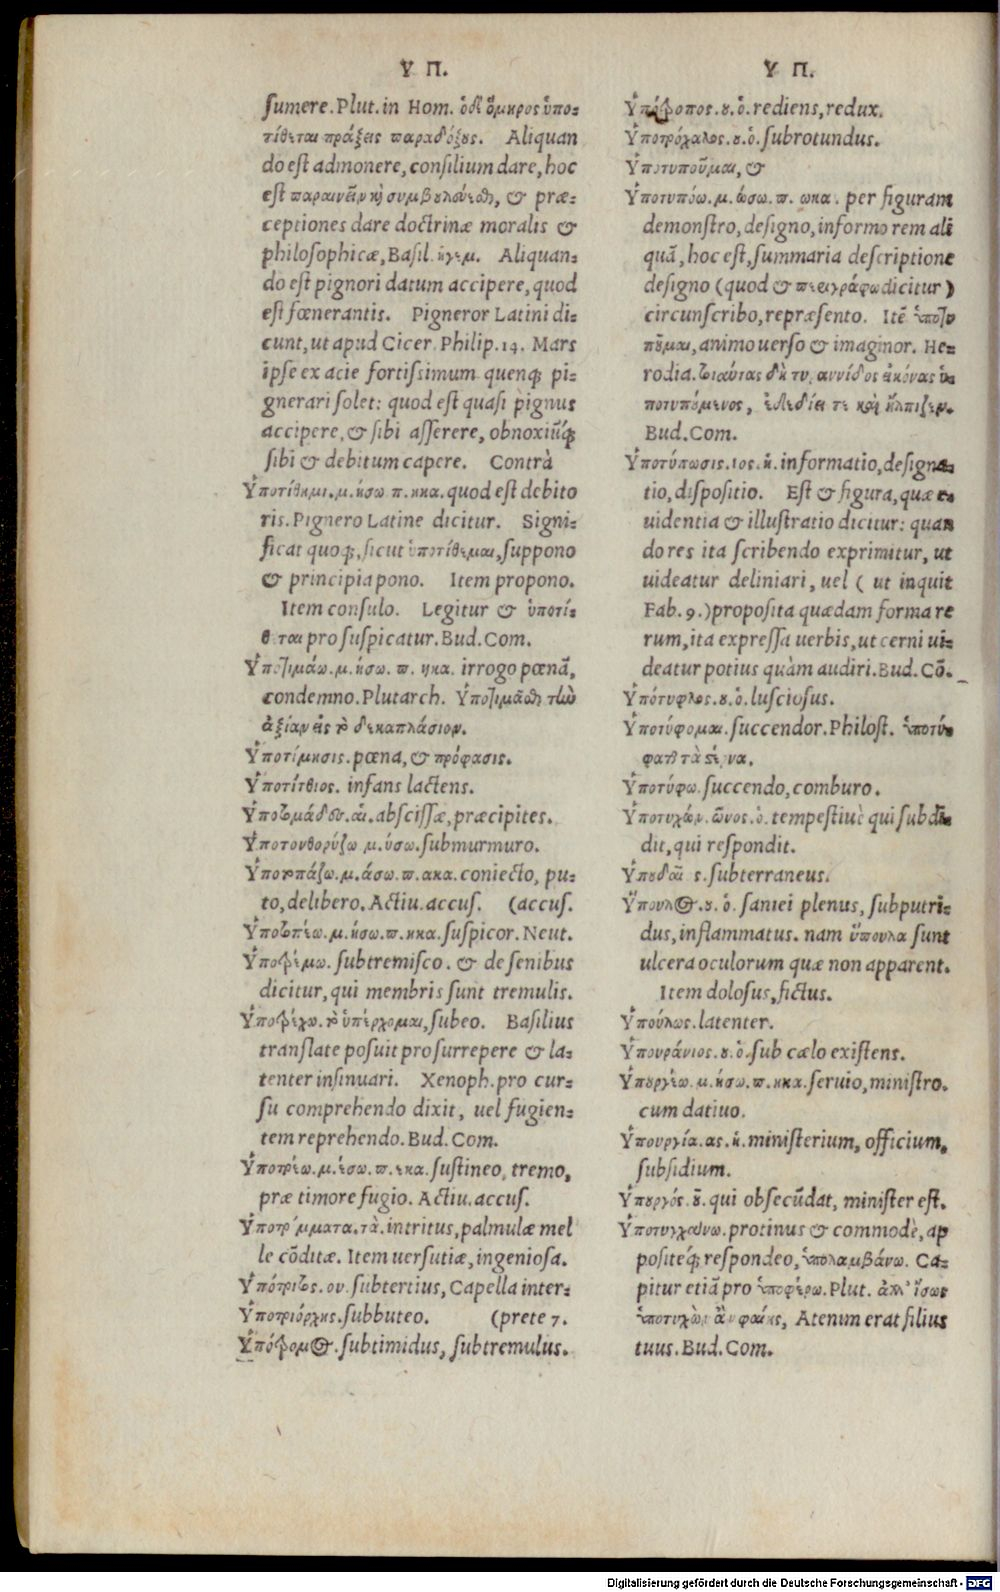 Υ Π.
sumere. Plut. in Hom. ὁ δὲ ὅμηρος ὑπο-
τίθεται πράξεις παραδόξους. Aliquan
do est admonere, consilium dare, hoc
est παραινεῖν καὶ συμβουλεύεσθαι, & præ-
ceptiones dare doctrinæ moralis &
philosophicæ, Basil. ἡγεμ. Aliquan-
do est pignori datum accipere, quod
est fœnerantis. Pigneror Latini di-
cunt, ut apud Cicer. Philip. 14. Mars
ipse ex acie fortissimum quenq; pi-
gnerari solet: quod est quasi pignus
accipere, & sibi asserere, obnoxiũq́;
sibi & debitum capere. Contrà
Ὑποτίθημι. μ. ήσω. π. ηκα. quod est debito
ris. Pignero Latine dicitur. Signi-
ficat quoq;, sicut ὑποτίθεμαι, suppono
& principia pono. Item propono.
Item consulo. Legitur & ὑποτί-
θεται pro suspicatur. Bud. Com.
Ὑποτιμάω. μ. ήσω. π. ηκα. irrogo pœnã,
condemno. Plutarch. Ὑποτιμᾶσθαι τὴν
ἀξίαν εἰς τὸ δεκαπλάσιον.
Ὑποτίμησις. pœna, & πρόφασις.
Ὑποτίτθιος. infans lactens.
Ὑποτομάδες. αἱ. abscissæ, præcipites.
Ὑποτονθορύζω μ. ύσω. submurmuro.
Ὑποτοπάζω. μ. άσω. π. ακα. coniecto, pu-
to, delibero. Actiu. accus. (accus.
Ὑποτοπέω. μ. ήσω. π. ηκα. suspicor. Neut.
Ὑποτρέμω. subtremisco. & de senibus
dicitur, qui membris sunt tremulis.
Ὑποτρέχω. τὸ ὑπέρχομαι, subeo. Basilius
translate posuit pro surrepere & la-
tenter insinuari. Xenoph. pro cur-
su comprehendo dixit, uel fugien-
tem reprehendo. Bud. Com.
Ὑποτρέω. μ. έσω. π. εκα. sustineo, tremo,
præ timore fugio. Actiu. accus.
Ὑποτρίμματα. τὰ. intritus, palmulæ mel
le cõditæ. Item uersutiæ, ingeniosa.
Ὑπότριτος. ου. subtertius, Capella inter-
Ὑποτριόρχης. subbuteo. (prete 7.
Ὑπότρομος. subtimidus, subtremulus.
Υ Π.
Ὑπότροπος. ου. ὁ. rediens, redux.
Ὑποτρόχαλος. ου. ὁ. subrotundus.
Ὑποτυποῦμαι, &
Ὑποτυπόω. μ. ώσω. π. ωκα. per figuram
demonstro, designo, informo rem ali
quã, hoc est, summaria descriptione
designo (quod & περιγράφω dicitur)
circunscribo, repræsento. Itẽ ὑποτυ
ποῦμαι, animo uerso & imaginor. He-
rodia. τοιαύτας δὴ τυραννίδος εἰκόνας ὑ-
ποτυπόμενος, ἐδεδίει τε καὶ ἤλπιζεν.
Bud. Com.
Ὑποτύπωσις. ιος. ἡ. informatio, designa-
tio, dispositio. Est & figura, quæ e-
uidentia & illustratio dicitur: quan
do res ita scribendo exprimitur, ut
uideatur deliniari, uel ( ut inquit
Fab. 9.) proposita quædam forma re
rum, ita expressa uerbis, ut cerni ui-
deatur potius quàm audiri. Bud. Cõ.
Ὑπότυφλος. ου. ὁ. lusciosus.
Ὑποτύφομαι. succendor. Philost. ὑποτύ-
φαται τὰ
Ὑποτύφω. succendo, comburo.
Ὑποτυχών. ῶνος. ὁ. tempestiuè qui subdi-
dit, qui respondit.
Ὑπουδαῖος. subterraneus.
Ὕπουλος. ου. ὁ. saniei plenus, subputri-
dus, inflammatus. nam ὕπουλα sunt
ulcera oculorum quæ non apparent.
Item dolosus, fictus.
Ὑπούλως. latenter.
Ὑπουράνιος. ου. ὁ. sub cælo existens.
Ὑπουργέω. μ. ήσω. π. ηκα. seruio, ministro.
cum datiuo.
Ὑπουργία. ας. ἡ. ministerium, officium,
subsidium.
Ὑπουργός. οῦ. qui obsecũdat, minister est.
Ὑποτυγχάνω. protinus & commodè, ap
positeq́; respondeo, ὑπολαμβάνω. Ca-
pitur etiã pro ὑποφέρω. Plut. ἀλλ' ἴσως
ὑποτυχὼν ἂν φαίης, Atenim erat filius
tuus. Bud. Com.
Digitalisierung gefördert durch die Deutsche Forschungsgemeinschaft - DFG